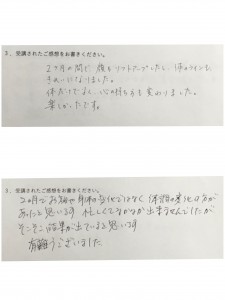 3、受講されたご感想をお書きください。
2ヶ月の間で顔もリフトアップしたし、体のラインも
きれいになりました。
体だけでなく、心の持ち方も変わりました。
楽しかったです。
3、受講されたご感想をお書きください。
2ヵ月でお腹や身体の変化ではなく 体調の変化の方が
あったと思います 忙しくてなかなか出来ませんでしたが
そこそこ結果が出ていると思います
有難うございました